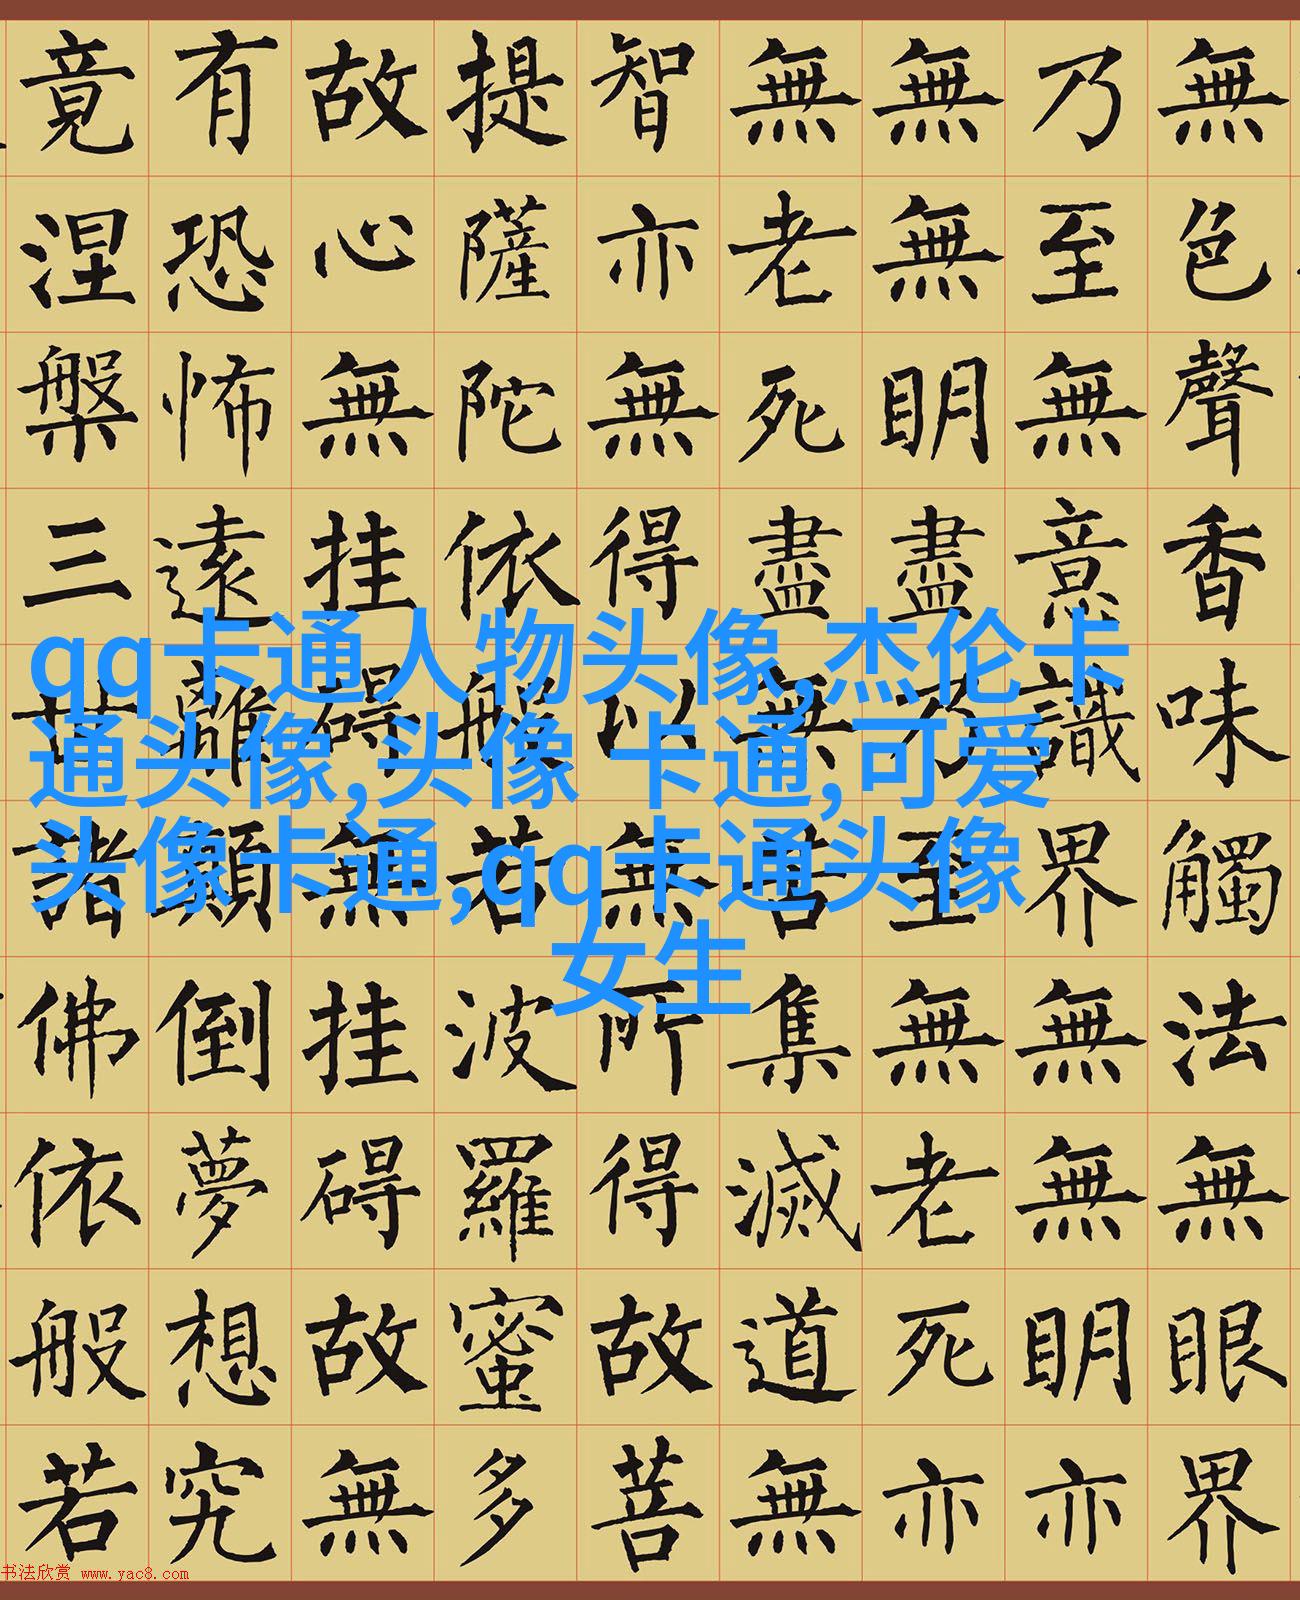 無色聲香味觸法無眼界
乃至無意識界無無眀亦
無無眀盡乃至無老死亦
無老死盡無苦集滅道無
智亦無得以無所得故菩
提薩陀依般若波羅蜜多
故心無挂碍無挂碍故無
有恐怖遠離顛倒夢想究
竟涅槃三世諸佛依般若
qq卡通人物头像,杰伦卡
通头像,头像 卡通,可爱
头像卡通,qq卡通头像
女生
书法欣赏 www.yac8.com